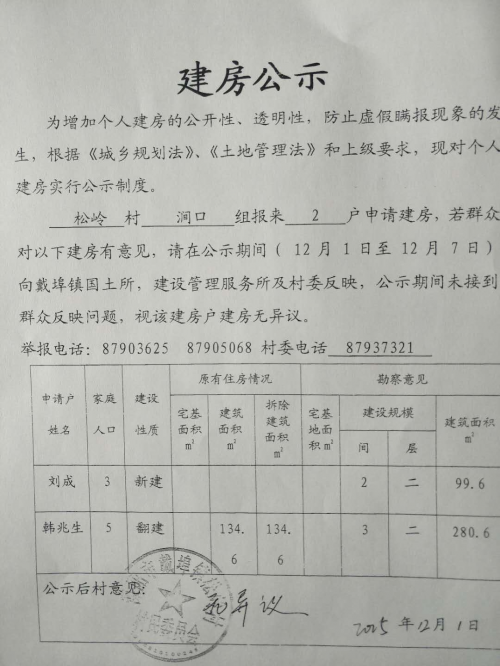 建房公示
为增加个人建房的公开性、透明性，防止虚假瞒报现象的发
生，根据《城乡规划法》、《土地管理法》和上级要求，现对个人
建房实行公示制度。
松岭 村 涧口 组报来 2 户申请建房，若群众
对以下建房有意见，请在公示期间（ 12 月 1 日至 12 月 7 日）
向戴埠镇国土所，建设管理服务所及村委反映，公示期间未接到
群众反映问题，视该建房户建房无异议。
举报电话：87903625 87905068 村委电话 87937321
申请户姓名 家庭人口 建设性质 原有住房情况 勘察意见
宅基面积m² 建筑面积m² 拆除建筑面积m² 宅基地面积m² 建设规模 建筑面积m²
间 层
刘成 3 新建 2 二 99.6
韩兆生 5 翻建 134.6 134.6 3 二 280.6
公示后村意见：
无异议
2015年12月1日
戴埠镇松岭村
村民委员会